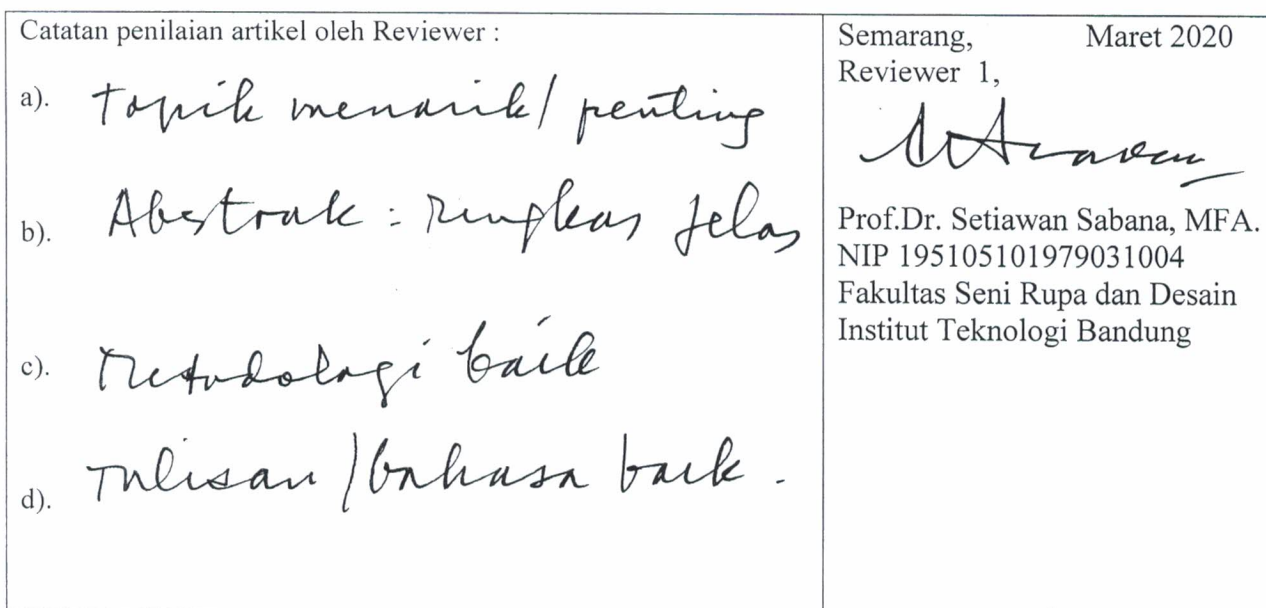 Catatan penilaian artikel oleh Reviewer :
a). Topik menarik/ penting
b). Abstrak : ringkas jelas
c). Metodologi baik
d). Tulisan /bahasa baik .
Semarang, Maret 2020
Reviewer 1,
Prof.Dr. Setiawan Sabana, MFA.
NIP 195105101979031004
Fakultas Seni Rupa dan Desain
Institut Teknologi Bandung